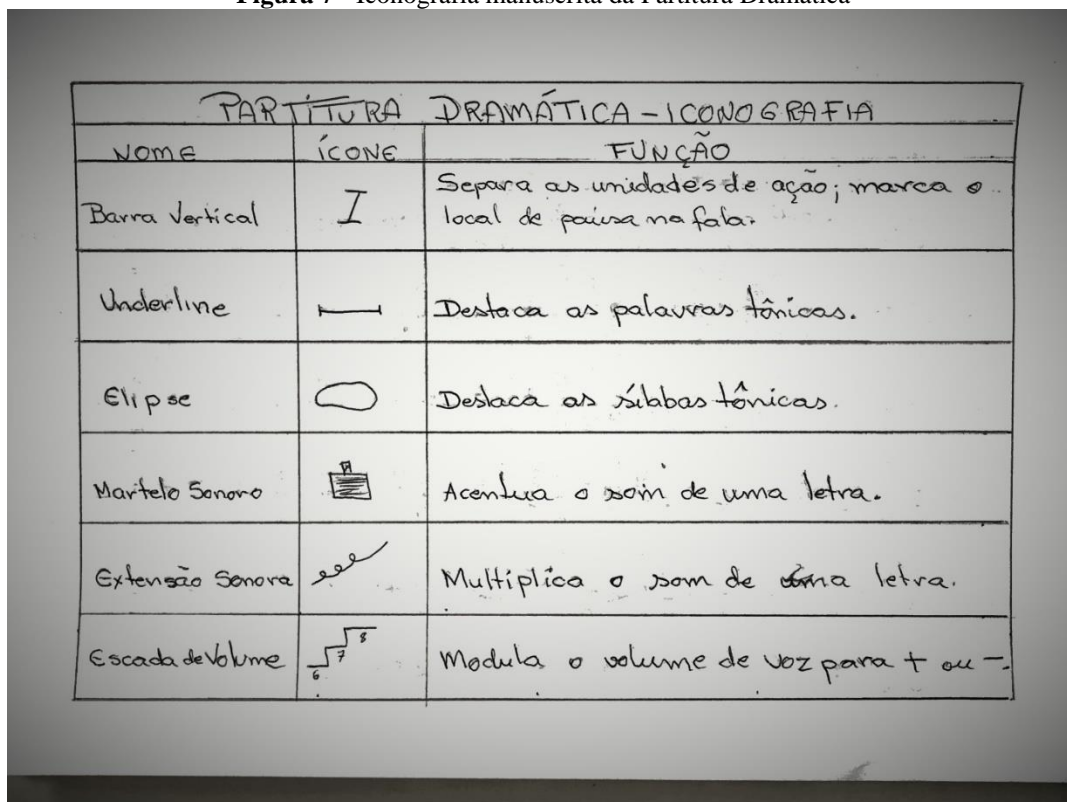 Figura 7 - Iconografia manuscrita da Partitura Dramática
PARTITURA DRAMÁTICA - ICONOGRAFIA
NOME ÍCONE FUNÇÃO
Barra Vertical Separa as unidades de ação; marca o
local de pausa na fala.
Underline Destaca as palavras tônicas.
Elipse Destaca as sílabas tônicas.
Martelo Sonoro Acentua o som de uma letra.
Extensão Sonora Multiplica o som de uma letra.
Escada de Volume 6 7 8 Modula o volume de voz para + ou -.